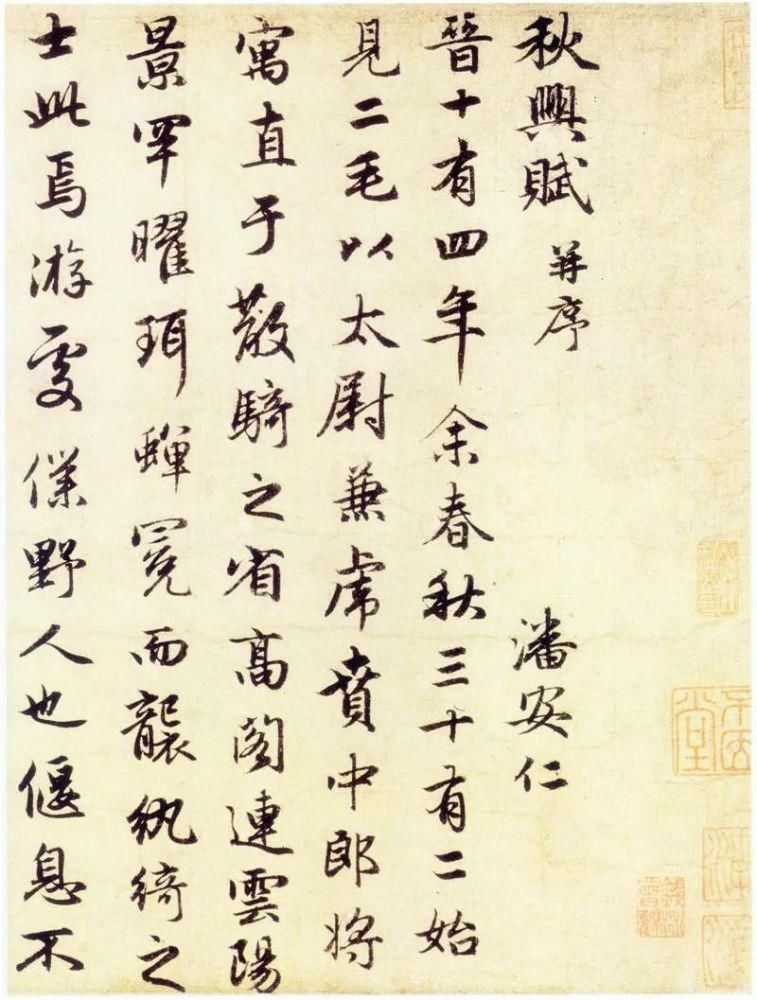 秋興賦 并序 潘安仁
晉十有四年余春秋三十有二始
見二毛以太尉兼虎賁中郎將
寓直于散騎之省高閣連雲陽
景罕曜珥蟬冕而襲紈綺之
士此焉游處僕野人也偃息不